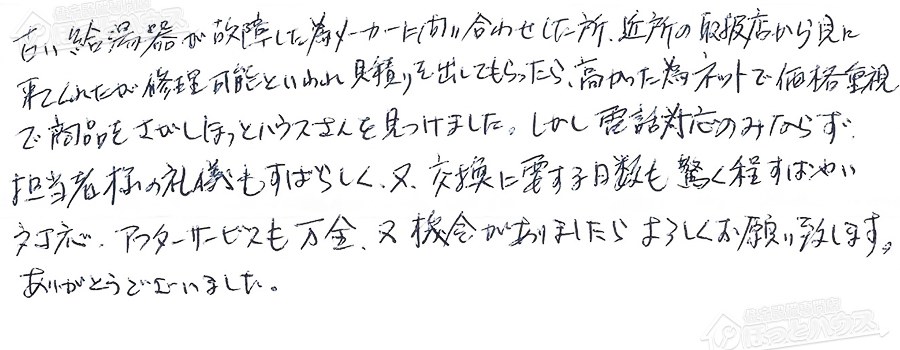 古い給湯器が故障した為メーカーに問い合わせした所、近所の取扱店から見に
来てくれたが修理可能といわれ見積りを出してもらったら、高かった為ネットで価格重視
で商品をさがしほっとハウスさんを見つけました。しかし電話対応のみならず、
担当者様の礼儀もすばらしく、又、交換に要する日数も驚く程すばやい
対応、アフターサービスも万全、又機会がありましたらよろしくお願い致します。
ありがとうございました。
ほっとハウス